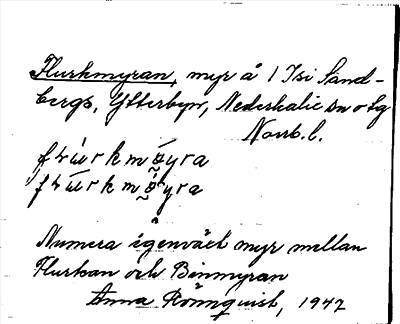 Flurkmyran, myr å 1 Isi Sand-
bergs, Ytterbyn, Nederkalix sn o lg
Norrb. l.
Numera igenväxt myr mellan
Flurkan och Binmyran
Anna Rönnquist, 1947